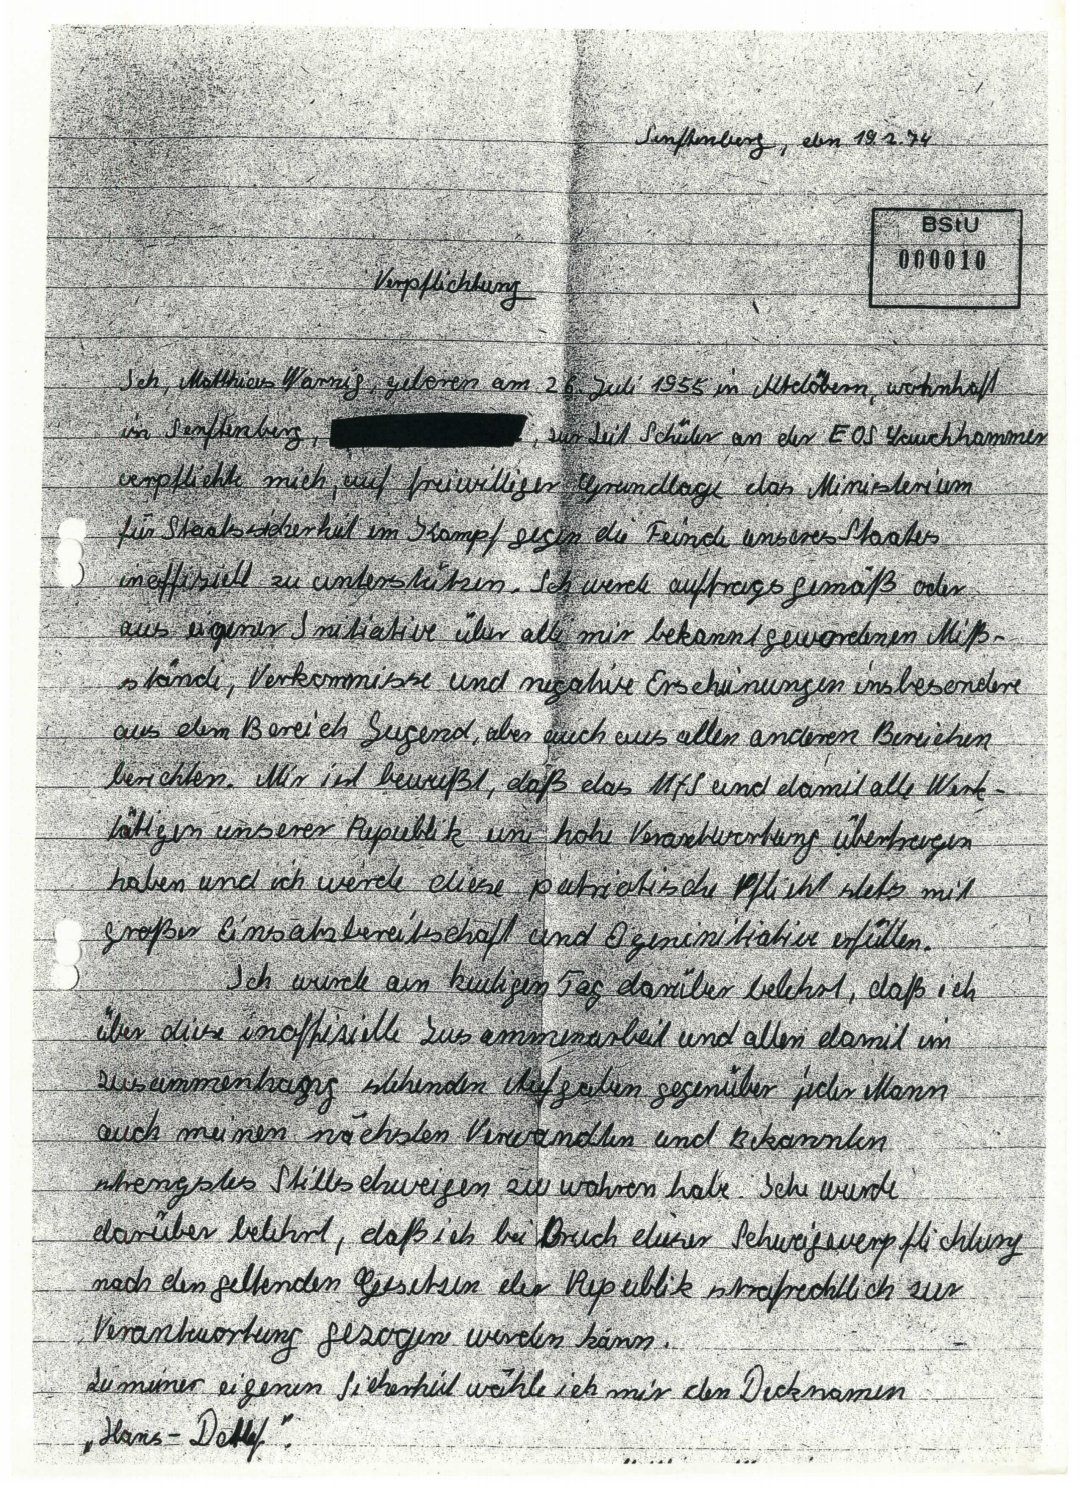 Senftenberg, den 19.2.74
BStU
000010
Verpflichtung
Ich, Matthias Warnig, geboren am 26. Juli 1955 in Altdöbern, wohnhaft
in Senftenberg, , zur Zeit Schüler an der EOS Lauchhammer
verpflichte mich, auf freiwilliger Grundlage das Ministerium
für Staatssicherheit im Kampf gegen die Feinde unseres Staates
inoffiziell zu unterstützen. Ich werde auftragsgemäß oder
aus eigener Initiative über alle mir bekanntgewordenen Miß-
stände, Vorkommnisse und negative Erscheinungen insbesondere
aus dem Bereich Jugend, aber auch aus allen anderen Bereichen
berichten. Mir ist bewußt, daß das MfS und damit alle Werk-
tätigen unserer Republik eine hohe Verantwortung übertragen
haben und ich werde diese patriotische Pflicht stets mit
großer Einsatzbereitschaft und Eigeninitiative erfüllen.
Ich wurde am heutigen Tag darüber belehrt, daß ich
über diese inoffizielle Zusammenarbeit und allen damit im
Zusammenhang stehenden Aufgaben gegenüber jeder Mann
auch meinen nächsten Verwandten und Bekannten
strengstes Stillschweigen zu wahren habe. Ich wurde
darüber belehrt, daß ich bei Bruch dieser Schweigeverpflichtung
nach den geltenden Gesetzen der Republik strafrechtlich zur
Verantwortung gezogen werden kann.
Zu meiner eigenen Sicherheit wähle ich mir den Decknamen
„Hans-Detlef".